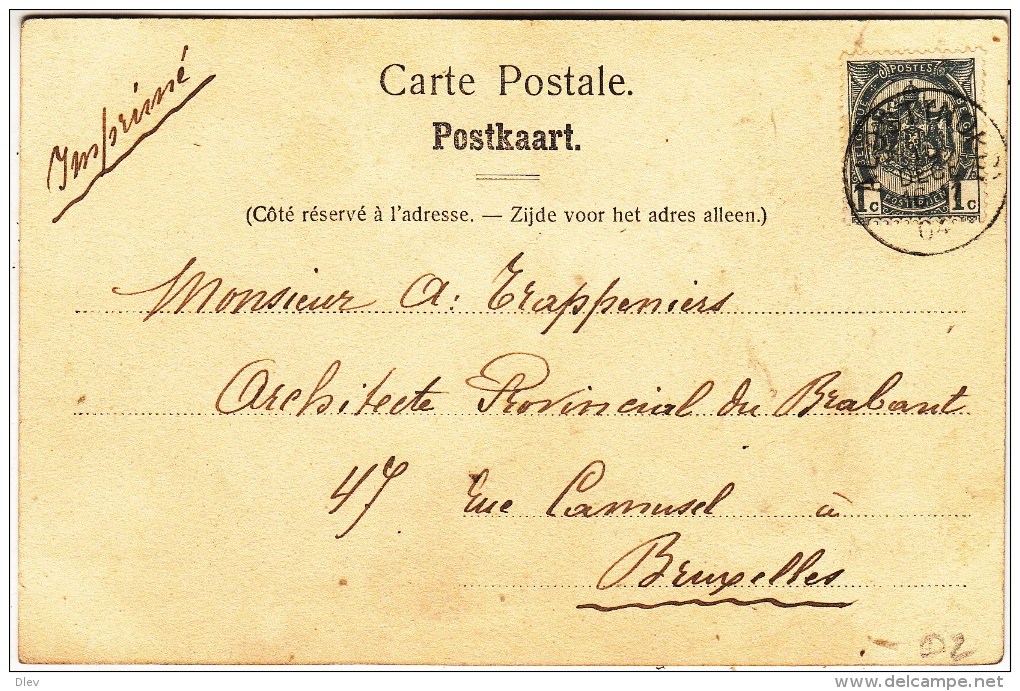 Imprimé
Carte Postale.
Postkaart.
(Côté réservé à l'adresse. — Zijde voor het adres alleen.)
POSTES
BELGIQUE
1c
POSTERIJEN
1c
04
Monsieur A: Trappeniers
Architecte Provincial du Brabant
47 Rue Camusel à
Bruxelles
D2
Dlev
delcampe.net